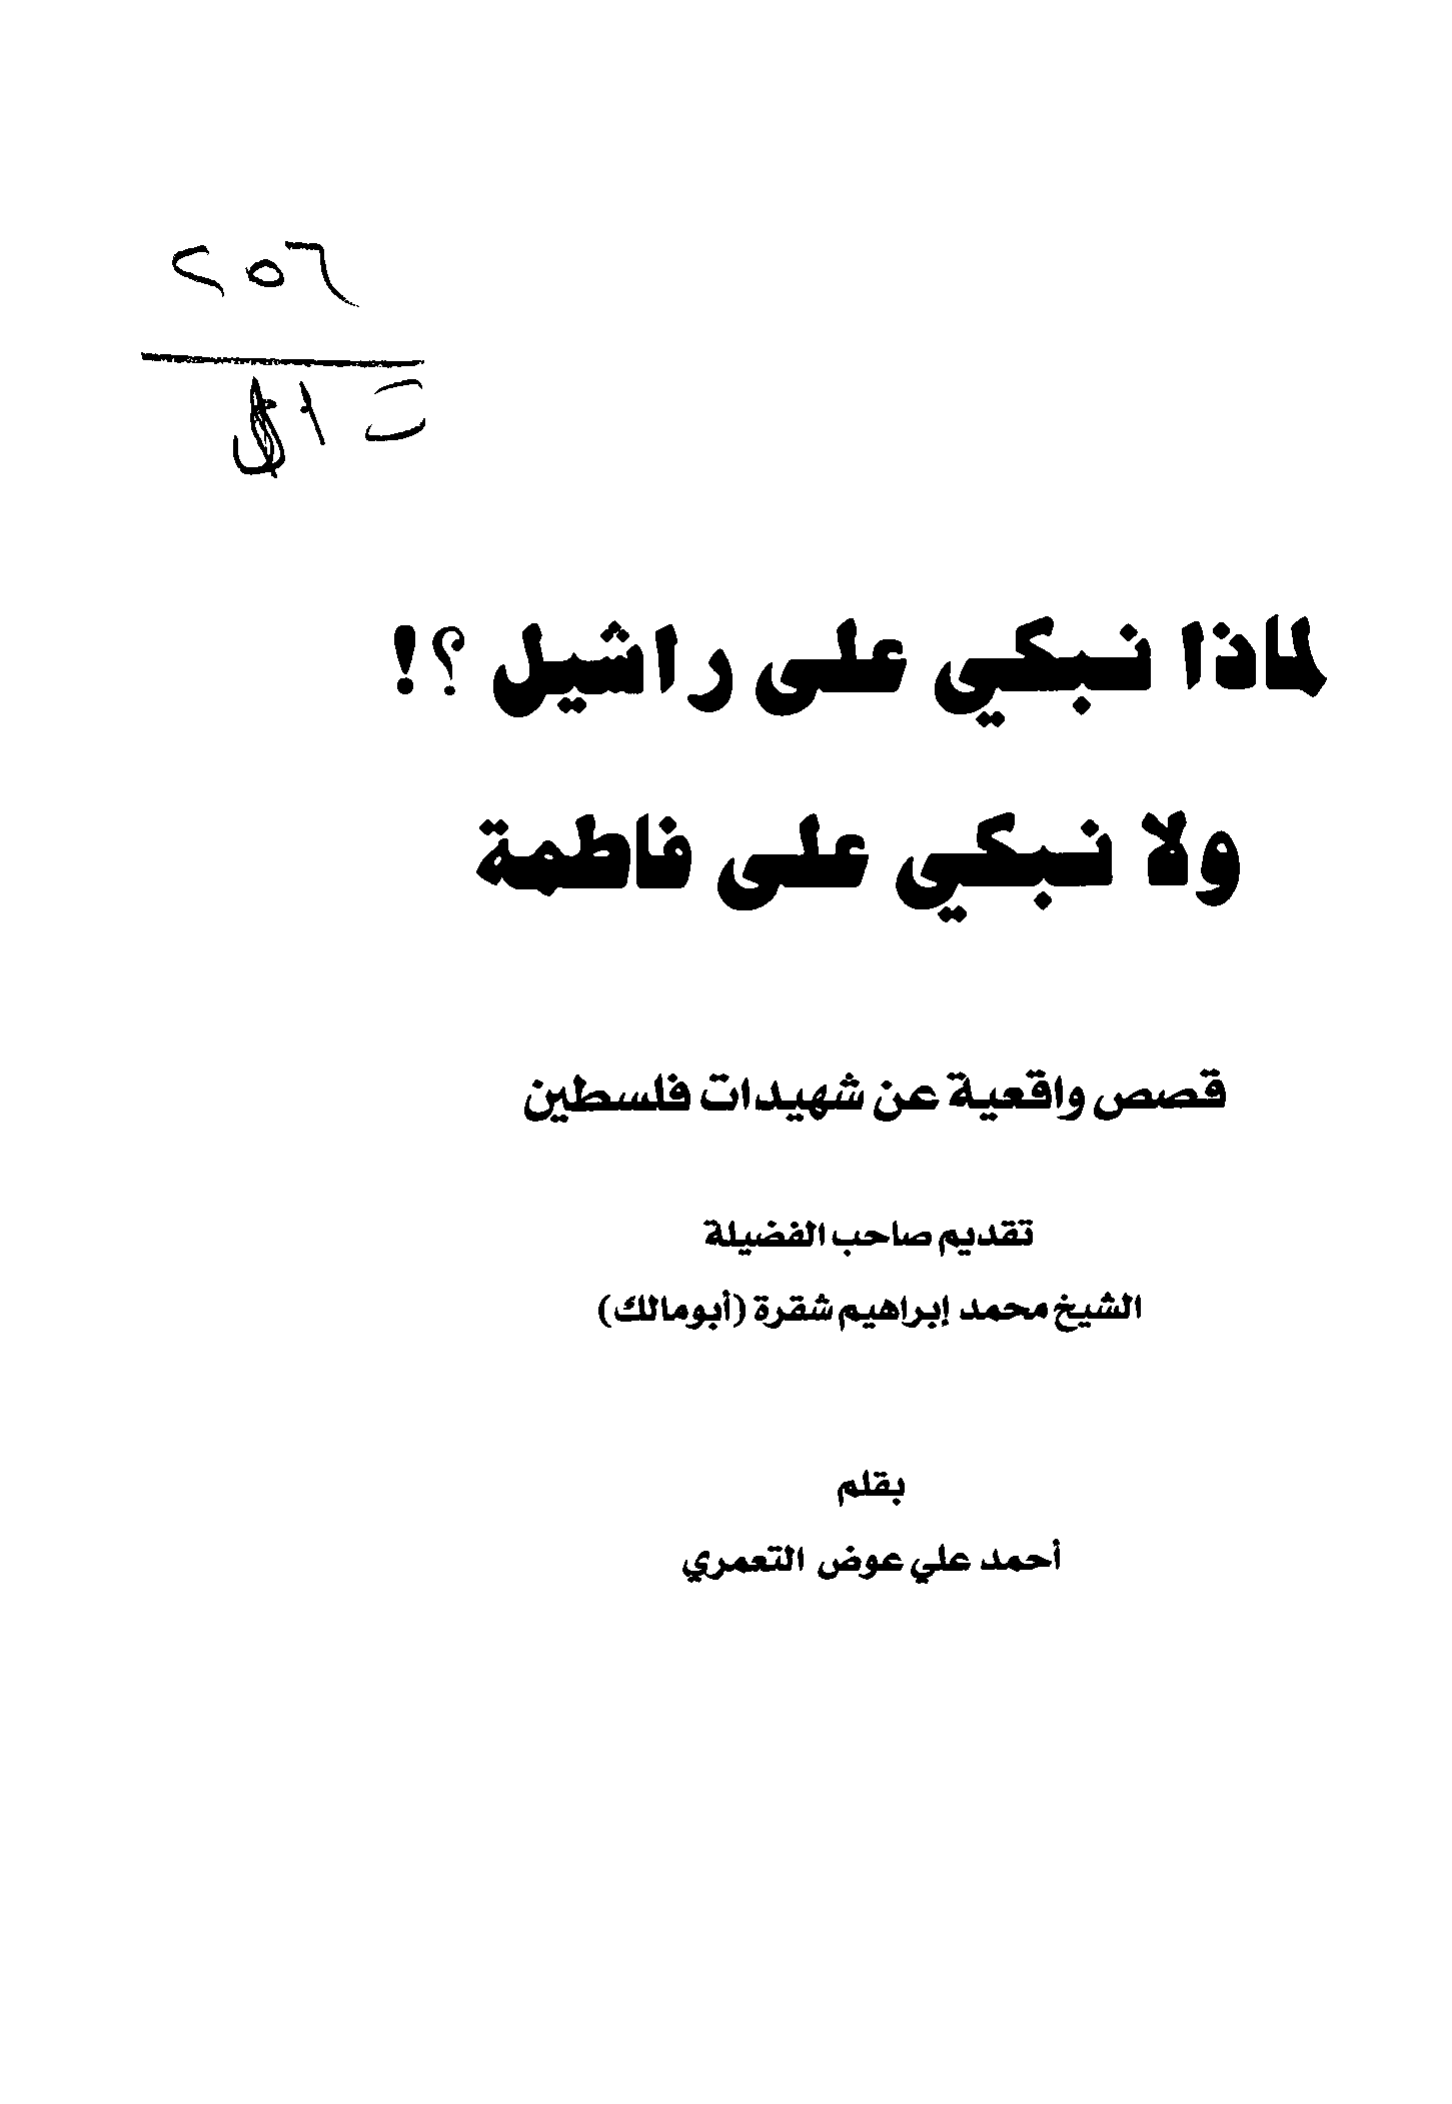 ٢٥٦
لماذا نبكي على راشيل ؟!
ولا نبكي على فاطمة
قصص واقعية عن شهيدات فلسطين
تقديم صاحب الفضيلة
الشيخ محمد إبراهيم شقرة (أبومالك)
بقلم
أحمد علي عوض التعمري